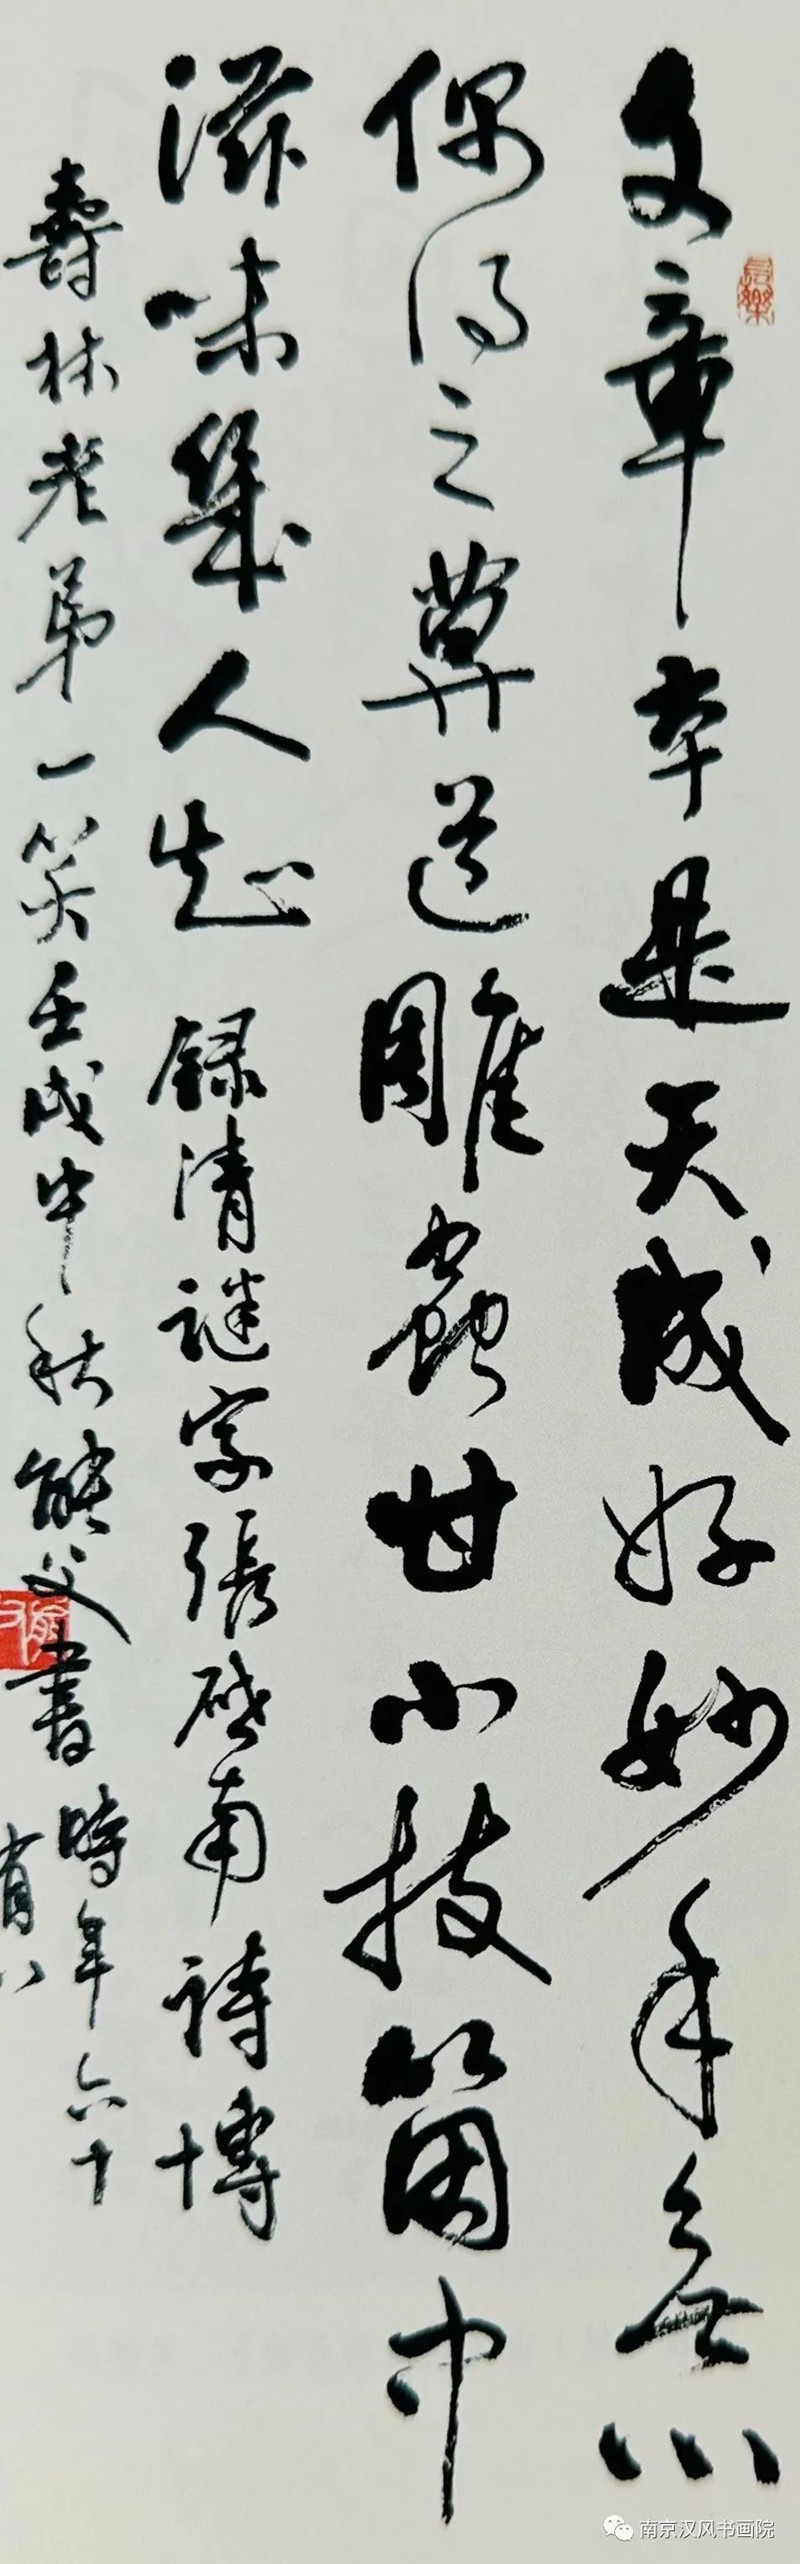 文章本是天成好妙手無心
偶得之莫道雕蟲甘小技箇中
滋味幾人知 録清謎字張啓南詩博
壽林老弟一笑壬戌中秋能父書時年六十
有八
南京汉风书画院